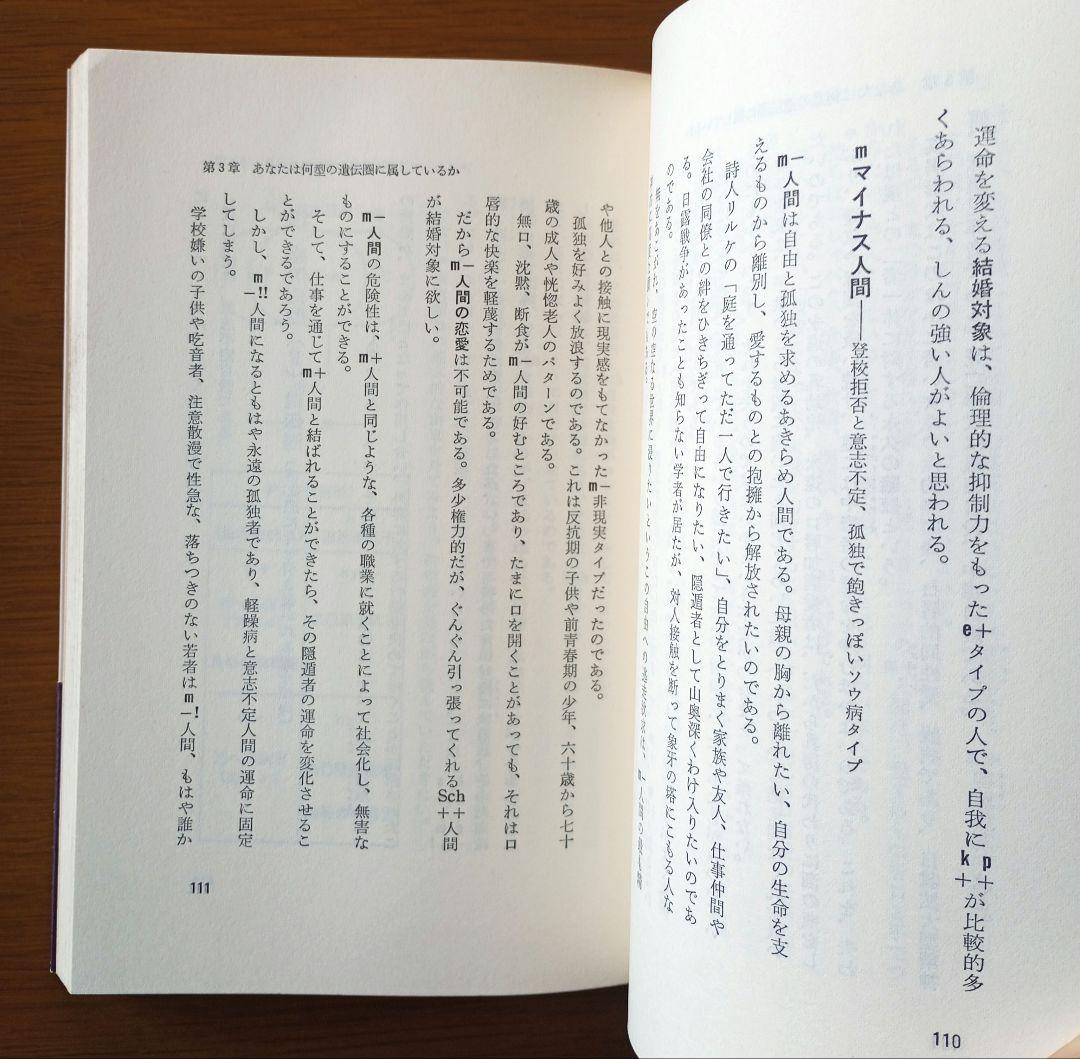 運命を変える結婚対象は、倫理的な抑制力をもったe+タイプの人で、自我にp+k+が比較的多
くあらわれる、しんの強い人がよいと思われる。
mマイナス人間――登校拒否と意志不定、孤独で飽きっぽいソウ病タイプ
m−人間は自由と孤独を求めるあきらめ人間である。母親の胸から離れたい、自分の生命を支
えるものから離別し、愛するものとの抱擁から解放されたいのである。
詩人リルケの「庭を通ってただ一人で行きたい」、自分をとりまく家族や友人、仕事仲間や
会社の同僚との絆をひきちぎって自由になりたい、隠遁者として山奥深くわけ入りたいのであ
る。日露戦争があったことも知らない学者が居たが、対人接触を断って象牙の塔にこもる人な
のである。
110
第3章 あなたは何型の遺伝圏に属しているか
や他人との接触に現実感をもてなかったm−非現実タイプだったのである。
孤独を好みよく放浪するのである。これは反抗期の子供や前青春期の少年、六十歳から七十
歳の成人や恍惚老人のパターンである。
無口、沈黙、断食がm−人間の好むところであり、たまに口を開くことがあっても、それは口
唇的な快楽を軽蔑するためである。
だからm−人間の恋愛は不可能である。多少権力的だが、ぐんぐん引っ張ってくれるSch++人間
が結婚対象に欲しい。
m−人間の危険性は、m+人間と同じような、各種の職業に就くことによって社会化し、無害な
ものにすることができる。
そして、仕事を通じてm+人間と結ばれることができたら、その隠遁者の運命を変化させるこ
とができるであろう。
しかし、m−!!人間になるともはや永遠の孤独者であり、軽躁病と意志不定人間の運命に固定
してしまう。
学校嫌いの子供や吃音者、注意散漫で性急な、落ちつきのない若者はm−!人間、もはや誰か
111